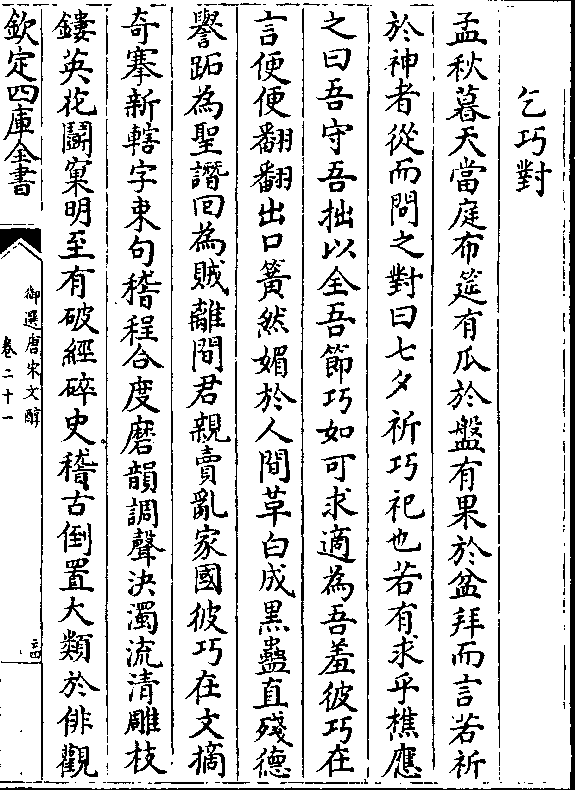 乞巧對
孟秋暮天當庭布筵有瓜於盤有果於盆拜而言若祈
於神者從而問之對曰七夕祈巧祀也若有求乎樵應
之曰吾守吾拙以全吾節巧如可求適為吾羞彼巧在
言便便翻翻出口簧然媚於人間革白成黑蠱直殘德
譽跖為聖譖回為賊離間君親賣亂家國彼巧在文摘
奇搴新轄字束句稽程合度磨韻調聲決濁流清雕枝
鏤英花鬭窠明至有破經碎史稽古倒置大類於俳觀
欽定四庫全書
御選唐宋文醇
卷二十一